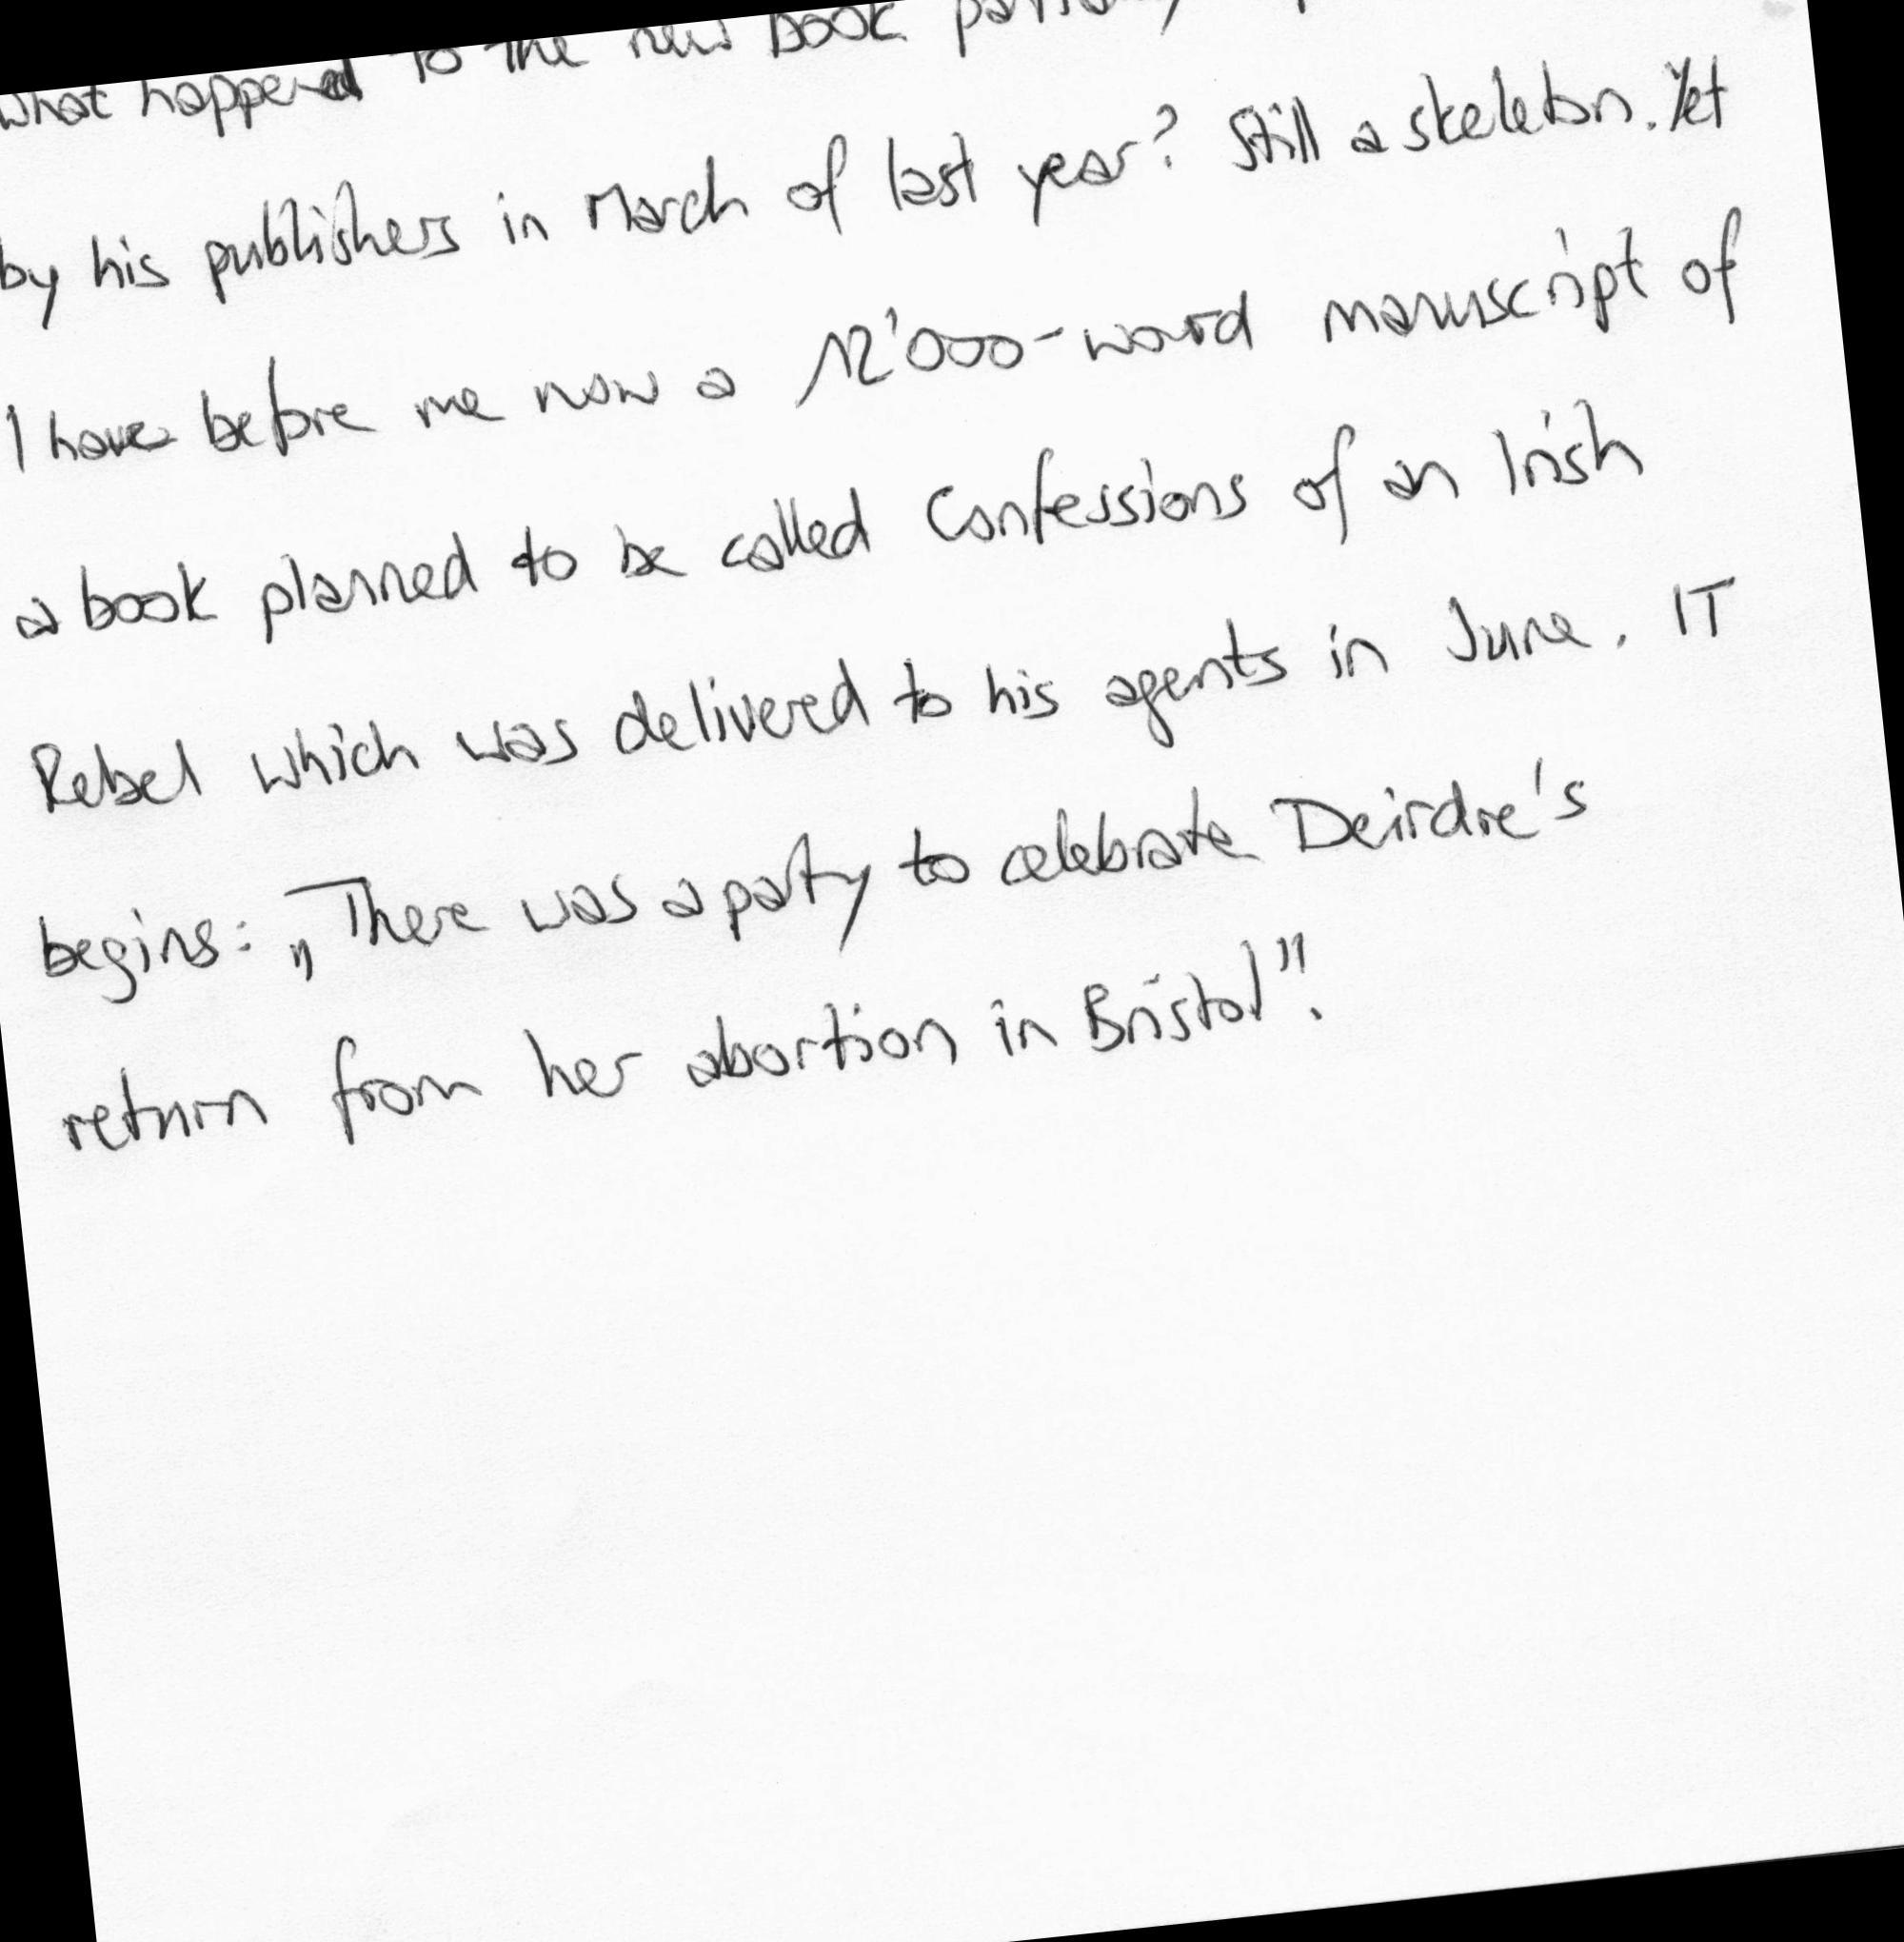 what happened to the new book
by his publishers in March of last year? Still a skeleton. Yet
I have before me now a 12'000-word manuscript of
a book planned to be called Confessions of an Irish
Rebel which was delivered to his agents in June. IT
begins: „There was a party to celebrate Deirdre's
return from her abortion in Bristol".